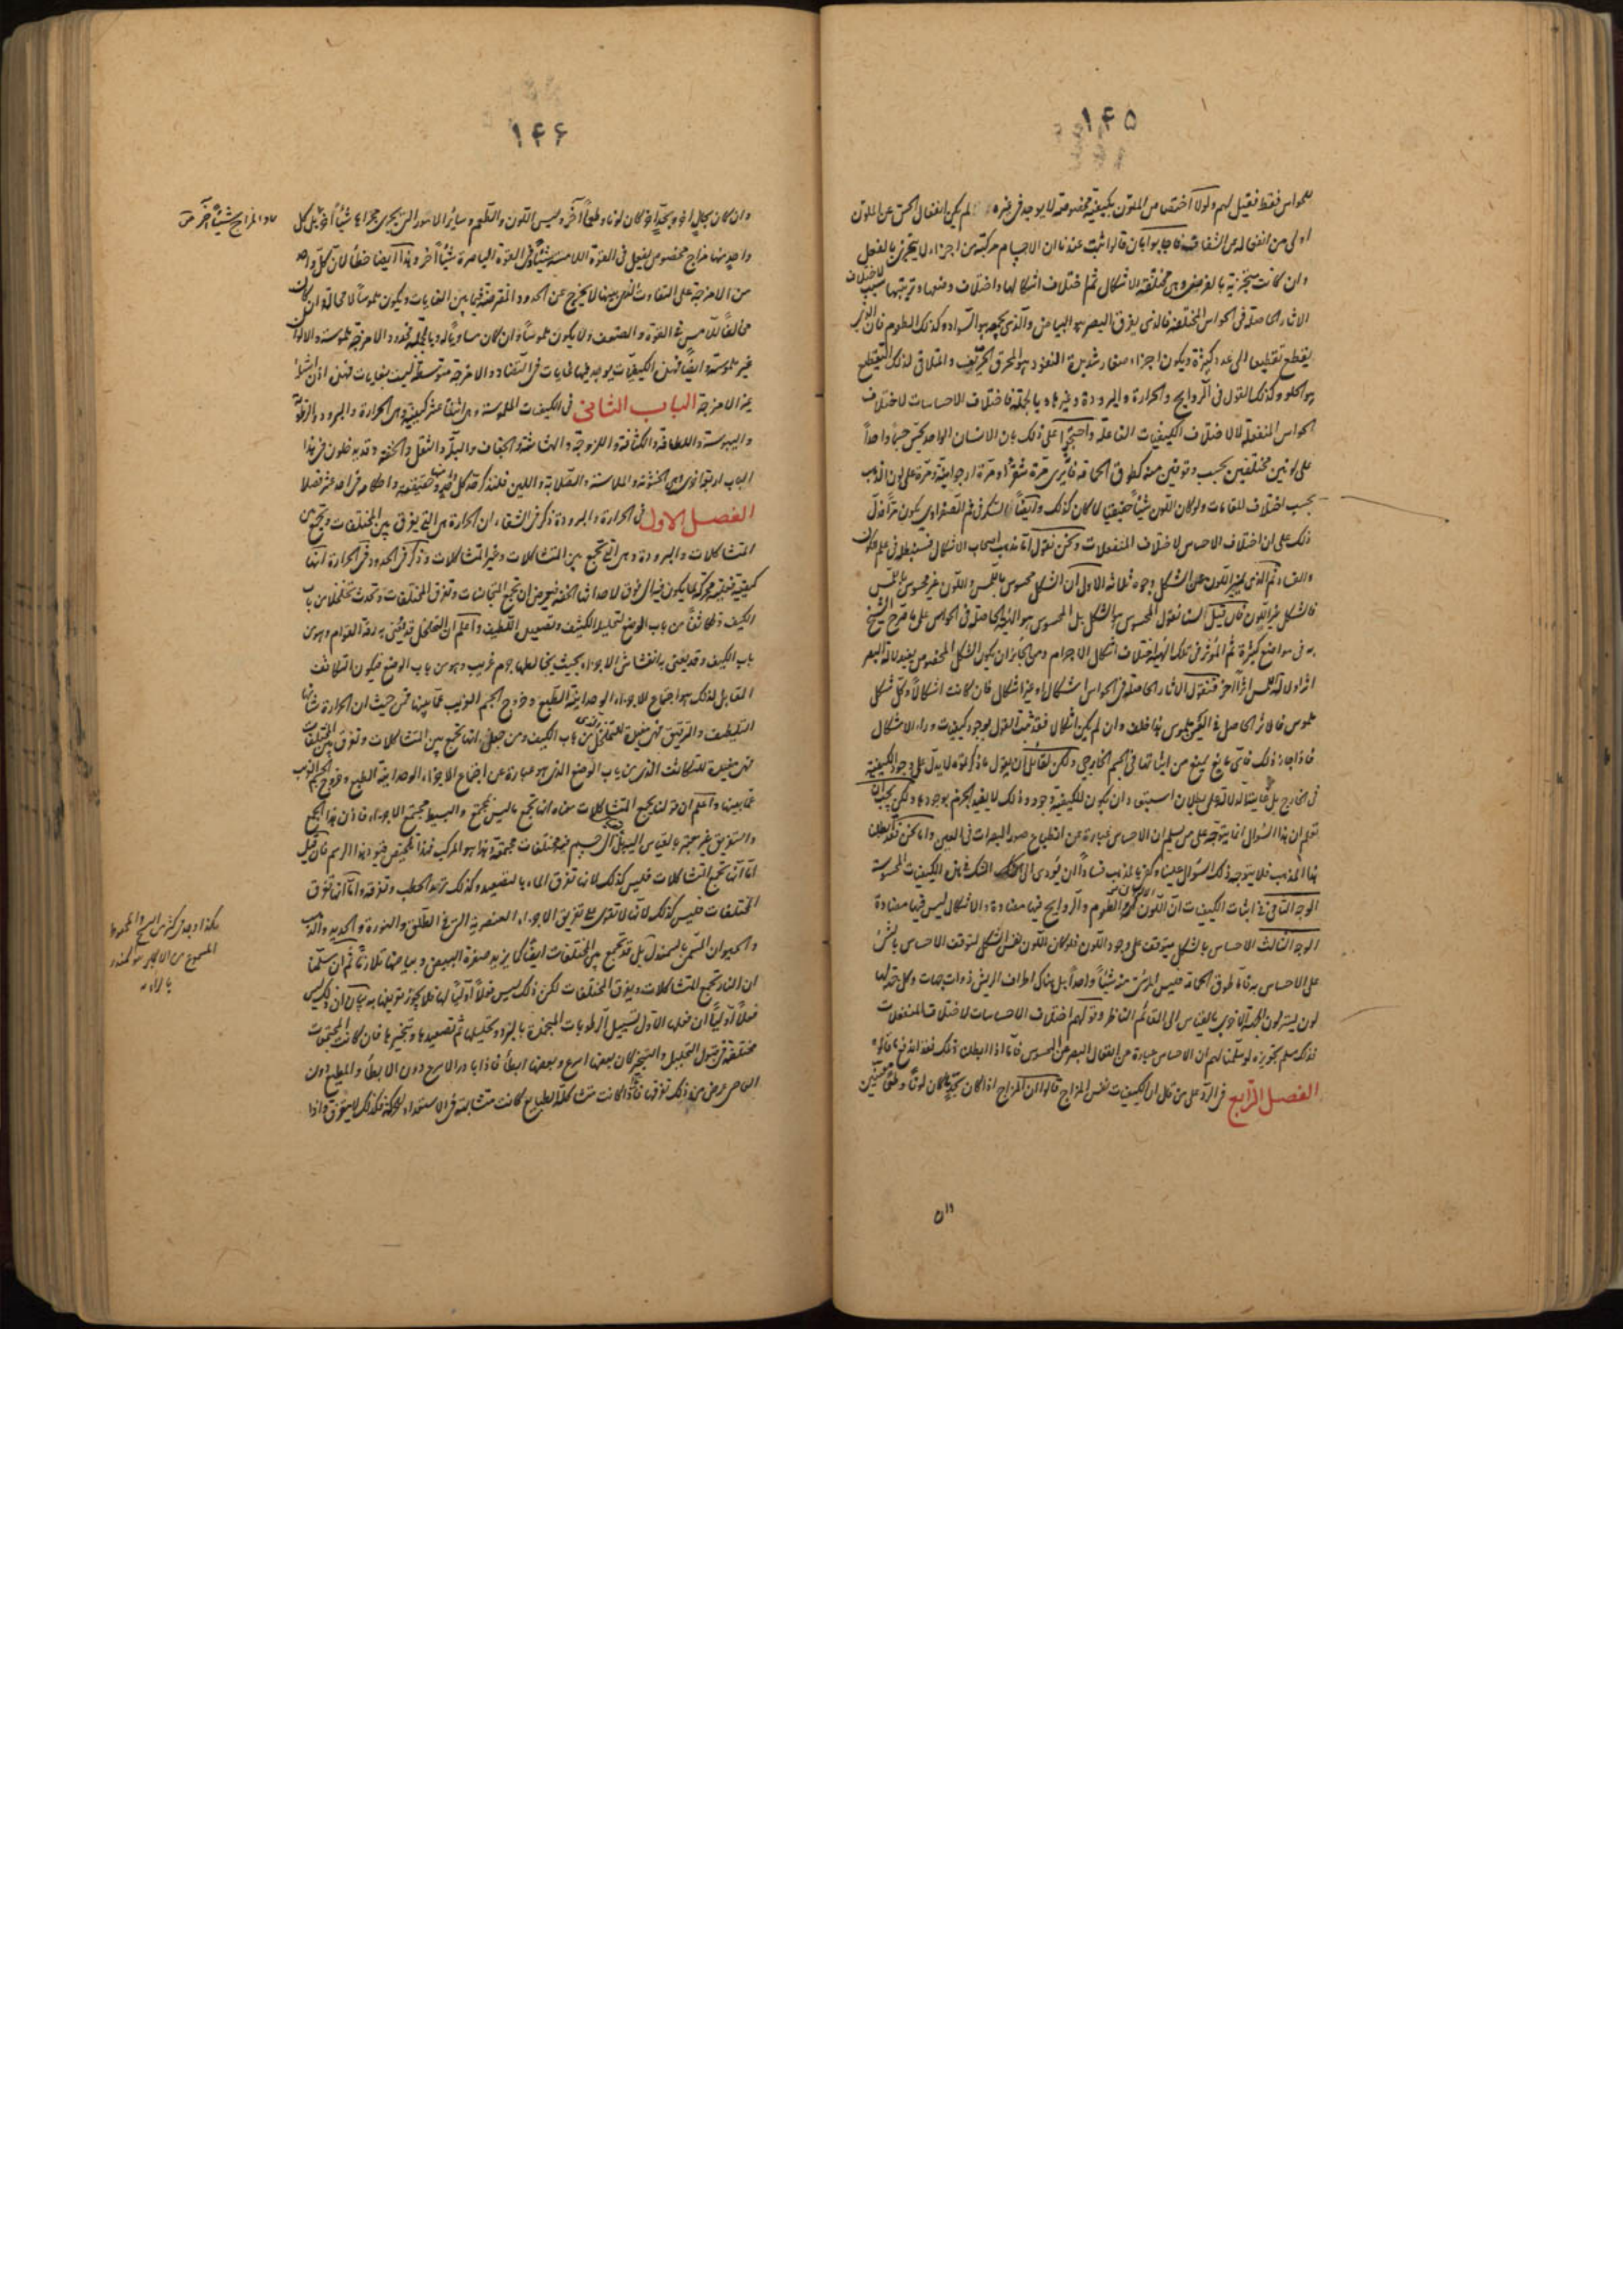 ١٤٥
للحواس فقط فقيل لهم ولولا اختصاص الملون بكيفية مخصوصة لا يوجد فى غيره لم يكن انفعال الحس عن الملون
اولى من انفعاله عن الشفاف فاجابوا بان قالوا ثبت عندنا ان الاجسام مركبة من اجزاء لا يتجزى بالفعل
وان كانت متجزية بالفرض وهى مختلفة الاشكال ثم اختلاف اشكالها واختلاف وضعها وترتيبها سبب لاختلاف
الاثار الحاصلة فى الحواس المختلفة فالذى يفرق البصر هو البياض والذى يجمعه هو السواد وكذلك الطعوم فان الذى
يقطع تقطيعا الى عدد كثيرة ويكون اجزاء صغار شديدة النفوذ هو المحرق الحريف والمتلاقى لذلك التقطيع
هو الحلو وكذلك القول فى الروايح والحرارة والبرودة وغيرها وبالجملة فاختلاف الاحساسات لاختلاف
الحواس المنفعلة لا لاختلاف الكيفيات الفاعلة واحتجوا على ذلك بان الانسان الواحد يحس جسما واحداً
على لونين مختلفين بحسب وقوفين منه كطوق الحمامة فانه يرى مرة شقراء ومرة ارجوانية ومرة على لون الذهب
بحسب اختلاف المقامات ولو كان اللون شيئاً حقيقيا لما كان كذلك وايضاً السكر فى فم الصفراوى يكون مرّا فدلّ
ذلك على ان اختلاف الاحساس لاختلاف المنفعلات ونحن نقول اما مذهب اصحاب الاشكال فسنبطله فى علم الكون
والفساد ثم الذى يميز اللون عن الشكل وجوه ثلاثة الاول ان الشكل محسوس باللمس واللون غير محسوس باللمس
فالشكل غير اللون فان قيل لسنا نقول المحسوس هو الشكل بل المحسوس هو الهيئة الحاصلة فى الحواس على ما صرح الشيخ
به فى مواضع كثيرة ثم المؤثر فى تلك الهيئة اختلاف اشكال الاجرام ومن الجائز ان يكون الشكل المخصوص يفيد لالة البصر
اثرا ولآلة اللمس اثراً آخر فنقول الاثار الحاصلة فى الحواس اشكال او غير اشكال فان كانت اشكالاً وكل شكل
ملموس فالاثر الحاصل فى العين ملموس هذا خلف وان لم يكن اشكال فقد ثبت القول بوجود كيفيات وراء الاشكال
فاذا جاز ذلك فاى مانع يمنع من اثباتها فى الجسم الخارجى ولكن لقائل ان يقول ما ذكرتموه لا يدل على وجود الكيفية
فى الخارج بل غايته الدلالة على بطلان استبعاد ان يكون للكيفية وجود وذلك لا يفيد الجزم بوجودها ولكن يجب ان
تعلم ان هذا السؤال انما يتوجه على من سلم ان الاحساس عبارة عن انطباع صور المبصرات فى العين واما نحن فقد ابطلنا
هذا المذهب فلا يتوجه ذلك السؤال علينا وكفى بالمذهب فساداً ان يؤدى الى الشك فى هذه الكيفيات المحسوسة
الوجه الثانى فى اثبات الكيفيات ان اللون والطعوم والروايح فيها مضادة والاشكال ليس فيها مضادة
الوجه الثالث الاحساس بالشكل متوقف على وجود اللون فلو كان اللون نفس الشكل لتوقف الاحساس بالشئ
على الاحساس به واما طوق الحمامة فليس المرئى منه شيئاً واحداً بل هناك اطراف الريش ذوات جهات وكل جهة لها
لون يستر لون الجهة الاخرى بالقياس الى القائم الناظر وقولهم اختلاف الاحساسات لاختلاف المنفعلات
فذلك مسلم بتجويزه لو سلمنا لهم ان الاحساس عبارة عن انفعال البصر عن المحسوس فاما اذا ابطلنا ذلك فقد اندفع ما قالوه
الفصل الرابع فى الرد على من قال ان الكيفيات نفس المزاج قالوا ان المزاج اذا كان بحدٍّ ما كان لونًا وطعمًا معينين
١١٥
١٤٦
وان كان بحال اخر وبحدّ اخر كان لونا وطعماً آخر وليس اللون والطعم وساير الامور التى يجرى مجراها شيئاً آخر بل كل
والمزاج شيئاً آخر
واحد منها مزاج مخصوص يفعل فى القوة اللامسة شيئاً وفى القوة الباصرة شيئاً آخر وهذا ايضا خطأ لان كل واحد
من الامزجة على التفاوت الذى بينها لا يخرج عن الحدود المفترضة فيما بين الغايات ويكون ملموساً لا محالة ان كان
مخالفاً للّامس فى القوة والضعف ولا يكون ملموساً ان كان مساوياً له وبالجملة فحدود الامزجة ملموسة والالوان
غير ملموسة وايضًا فهذه الكيفيات يوجد فيها غايات فى التضاد والامزجة متوسطة ليست بغايات فهذه اذن اشياء
غير الامزجة الباب الثانى فى الكيفيات الملموسة وهى اثنتا عشر كيفية وهى الحرارة والبرودة والرطوبة
واليبوسة واللطافة والكثافة واللزوجة والهشاشة والجفاف والبلّة والثقل والخفة وقد يدخلون فى هذا
الباب اربعا اخرى وهى الخشونة والملاسة والصلابة واللين فلنذكر حد كل واحد منها وحقيقته واحكامه فى احد عشر فصلا
الفصل الاول فى الحرارة والبرودة ذكر فى الشفاء ان الحرارة هى التى يفرق بين المختلفات وتجمع بين
المتشاكلات والبرودة هى التى تجمع بين المتشاكلات وغير المتشاكلات وذكر فى الحدود فى الحرارة انها
كيفية فعلية محركة لما يكون فيه الى فوق لاحداثها الخفة فيعرض ان تجمع المتجانسات وتفرق المختلفات وتحدث تخلخلا من باب
الكيف وتكاثفاً من باب الوضع لتحليله الكثيف وتصعيده اللطيف واعلم ان التخلخل قد يعنى به رقة القوام وهو من
باب الكيف وقد يعنى به انفشاش الاجزاء بحيث يخالطها جرم غريب وهو من باب الوضع فيكون التكاثف
المقابل لذلك هو اجتماع الاجزاء الوحدانية الطبع وخروج الجسم الغريب عما بينها فمن حيث ان الحرارة شأنها
التلطيف والترقيق فهى مفيدة للتخلخل الذى من باب الكيف ومن حيث انها تجمع بين المتشاكلات وتفرق بين المختلفات
فهى مفيدة للتكاثف الذى من باب الوضع الذى هو عبارة عن اجتماع الاجزاء الوحدانية الطبع وخروج الجسم الغريب
عما بينها واعلم ان قولنا يجمع المتشاكلات معناه انها تجمع ما ليس بمجتمع والبسيط مجتمع الاجزاء فاذن هذا الجمع
والتفريق غير متجه بالقياس اليه بل الى جسم فيه مختلفات مجتمعة وهذا هو المركب فهذا تلخيص فيود هذا الرسم فان قيل
اما انها تجمع المتشاكلات فليس كذلك لانها تفرق الماء بالتصعيد وكذلك ترمد الحطب وتفرقه واما انها تفرق
المختلفات فليس كذلك لانها لا تقوى على تفريق الاجزاء العنصرية التى فى الطلق والنورة والحديد والذهب
والحيوان المسمى بالسمندل بل قد تجمع بين المختلفات ايضًا كما يزيد صفرة البيض وبياضها تلازما ثم ان سلمنا
ان النار تجمع المتشاكلات ويفرق المختلفات لكن ذلك ليس فعلاً اولياً لها فلا يجوز تعريفها به بيان ان ذلك ليس
فعلاً اولياً ان فعلها الاول تسييل الرطوبات المتجمدة بالبرد وتحليلها ثم تصعيدها وتبخيرها فان كانت المجتمعات
مختلفة فى قبول التحليل والتبخير كان بعضها اسرع وبعضها ابطأ فاذا بادر الاسرع دون الابطأ والمطيع دون
العاصى عرض من ذلك تفرقها فاذا كانت متشاكلة الطبايع كانت متشابهة فى الاستعداد للحركة فكذلك لا يتفرق واذا
هكذا وجد فى كثير من النسخ والمضبوط